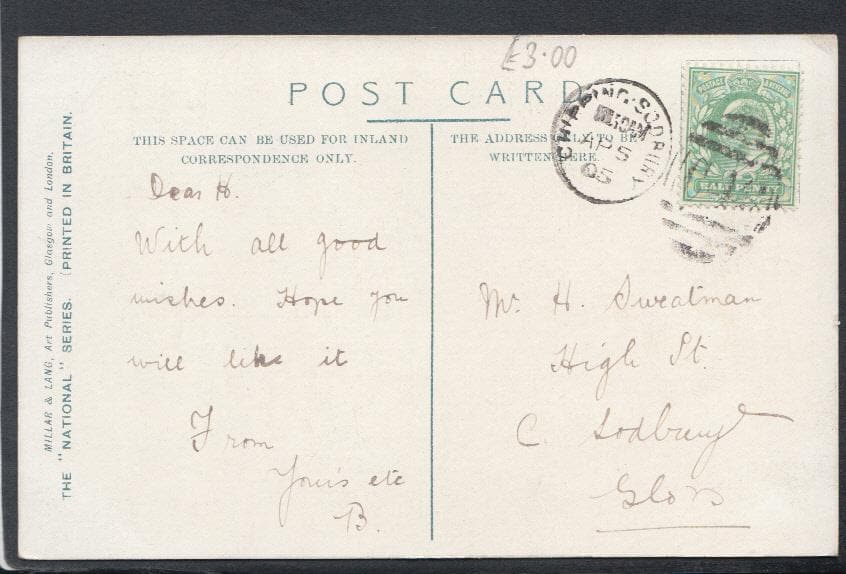 £3.00
POST CARD
THIS SPACE CAN BE USED FOR INLAND
CORRESPONDENCE ONLY.
THE ADDRESS ONLY TO BE
WRITTEN HERE.
CHIPPING-SODBURY
AP 5
05
POSTAGE
HALFPENNY
Dear H.
With all good
wishes. Hope you
will like it
From
Yours etc
B.
Mr H. Sweatman
High St.
C. Sodbury
Glos
MILLAR & LANG, Art Publishers, Glasgow and London.
THE "NATIONAL" SERIES. (PRINTED IN BRITAIN.